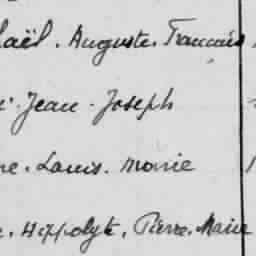 aël. Auguste. Francois
Jean. Joseph
ne. Louis. Marie
Hippolyte, Pierre. Marie